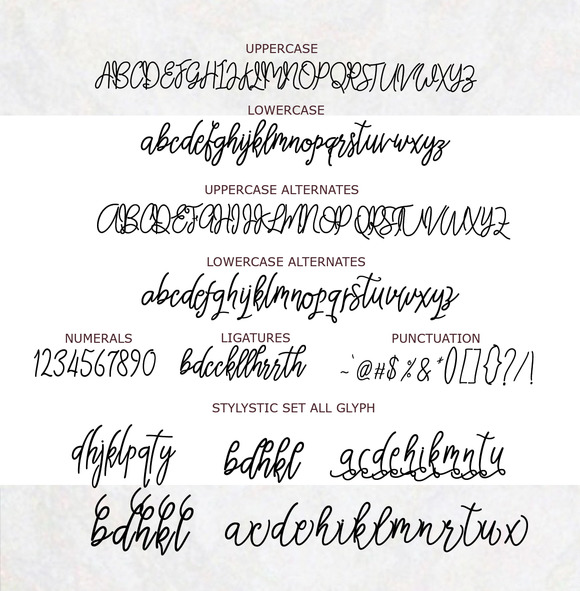 UPPERCASE
ABCDEFGHIJKLMNOPQRSTUVWXYZ
LOWERCASE
abcdefghijklmnopqrstuvwxyz
UPPERCASE ALTERNATES
ABCDEFGHIJKLMNOP QRSTUVWXYZ
LOWERCASE ALTERNATES
abcdefghijklmnopqrstuvwxyz
NUMERALS LIGATURES PUNCTUATION
1234567890 bdcckllhrrth ~`@#$%&*()[]{}?/!
STYLYSTIC SET ALL GLYPH
dhjklpqty bdhkl acdehikmntu
bdhkl acdehiklmnrtux